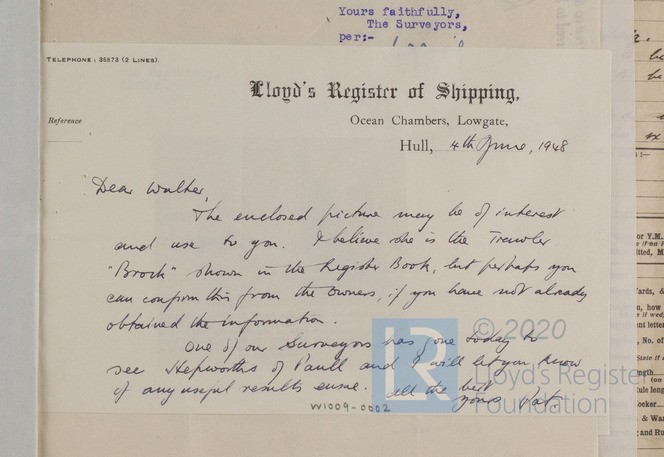 Yours faithfully,
The Surveyors,
per:-
TELEPHONE: 36873 (2 LINES).
Lloyd's Register of Shipping,
Reference
Ocean Chambers, Lowgate,
Hull, 4th June, 1948
Dear Walter,
The enclosed picture may be of interest
and use to you. I believe she is the Trawler
"Brock" shown in the Register Book, but perhaps you
can confirm this from the owners, if you have not already
obtained the information.
One of our Surveyors has gone today to
see Hepworths of Paull and I will let you know
if any useful results ensue. All the best
yours Pat.
W1009-0002
LR
© 2020
Lloyd's Register
Foundation